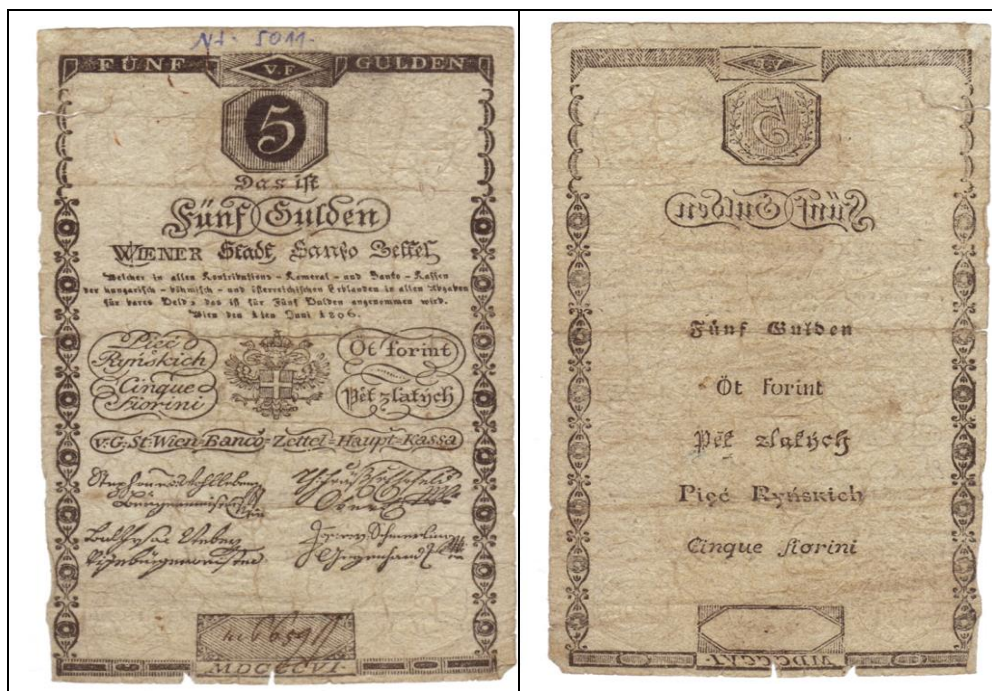 Nr. 5011.
FÜNF V.F GULDEN
5
Das ist
Fünf Gulden
WIENER Stadt Banko Zettel
Welcher in allen Kontributions - Kameral - und Banko - Kassen
der hungarisch - böhmisch - und österreichischen Erblanden in allen Abgaben
für bares Geld, das ist für Fünf Gulden angenommen wird.
Wien den 1ten Juni 1806.
Pięć
Ryńskich
Cinque
fiorini
Öt forint
Pět zlatých
v: G: St: Wien-Banco-Zettel-Haupt-Kassa
MDCCCVI
V.F
5
Fünf Gulden
Fünf Gulden
Öt forint
Pět zlatých
Pięć Ryńskich
Cinque fiorini
MDCCCVI